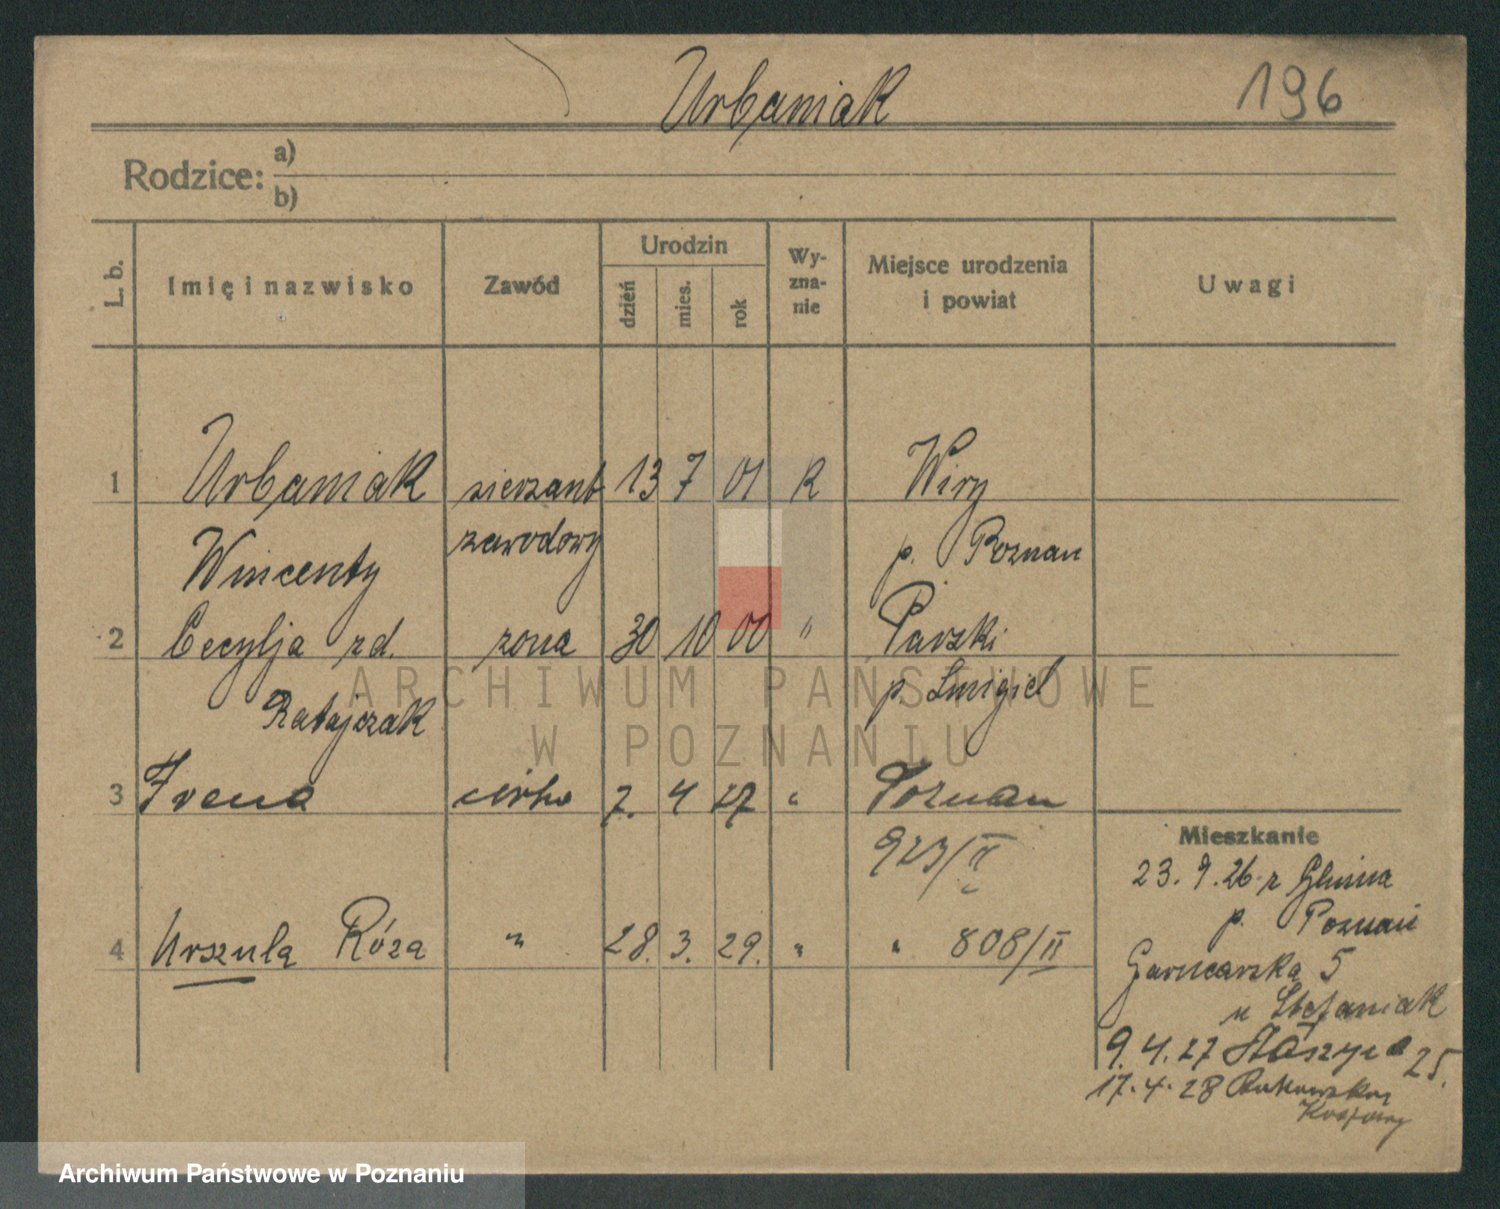 Urbaniak
196
Rodzice: a)
b)
L. b.
Imię i nazwisko
Zawód
Urodzin
dzień
mies.
rok
Wy-
zna-
nie
Miejsce urodzenia
i powiat
Uwagi
1 Urbaniak sierzant 13 7 01 R Wiry
Wincenty zawodowy p. Poznan
2 Cecylja zd. zona 30 10 00 " Parzki
Ratajczak p. Smigiel
3 Irena córka 7. 4 27 " Poznan
923/II
4 Urszula Róza " 28. 3. 29. " " 808/II
Mieszkanie
23. 9. 26. z Glinna
p. Poznań
Garncarska 5
u Stefaniak
9. 4. 27 Staszyca 25.
17. 4. 28 Bukowska
Koszary
ARCHIWUM PAŃSTWOWE
W POZNANIU
Archiwum Państwowe w Poznaniu